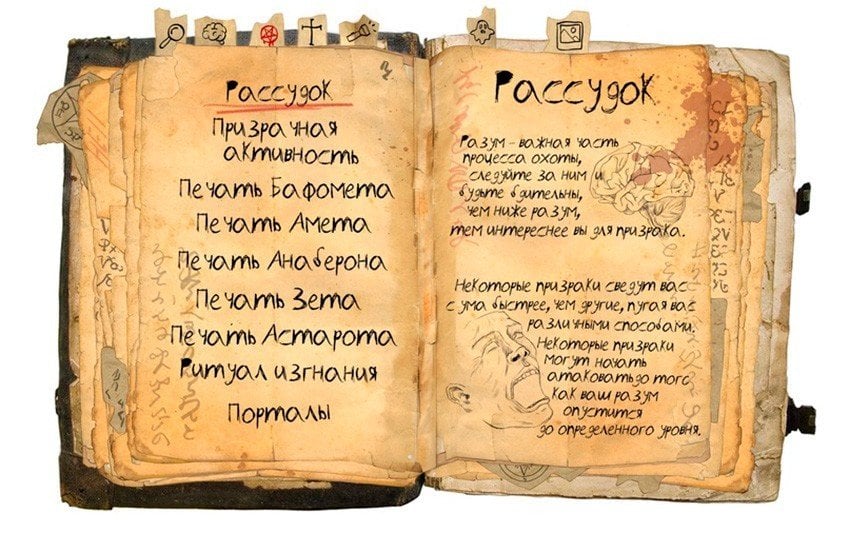 Рассудок
Призрачная
активность
Печать Бафомета
Печать Амета
Печать Анаберона
Печать Зета
Печать Астарота
Ритуал изгнания
Порталы
Рассудок
Разум - важная часть
процесса охоты,
следуйте за ним и
будьте бдительны,
чем ниже разум,
тем интереснее вы для призрака.
Некоторые призраки сведут вас
с ума быстрее, чем другие, пугая вас
различными способами.
Некоторые призраки
могут начать
атаковать до того,
как ваш разум
опустится
до определенного уровня.